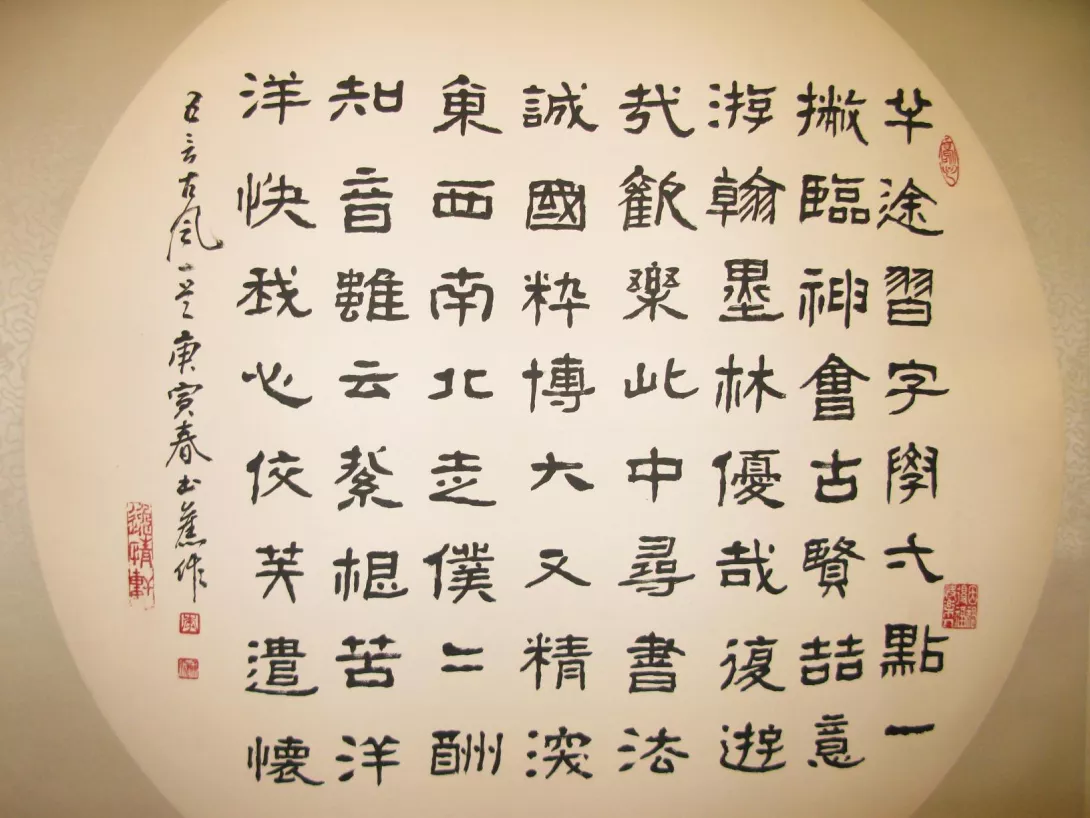 半途習字學弌點一
撇臨神會古賢喆意
游翰墨林優哉復遊
哉歡樂此中尋書法
誠國粹博大又精深
東西南北走僕二酬
知音雖云紮根苦洋
洋快我心佼笑遣懷
五言古風一首庚寅春書蕉作
逸情軒